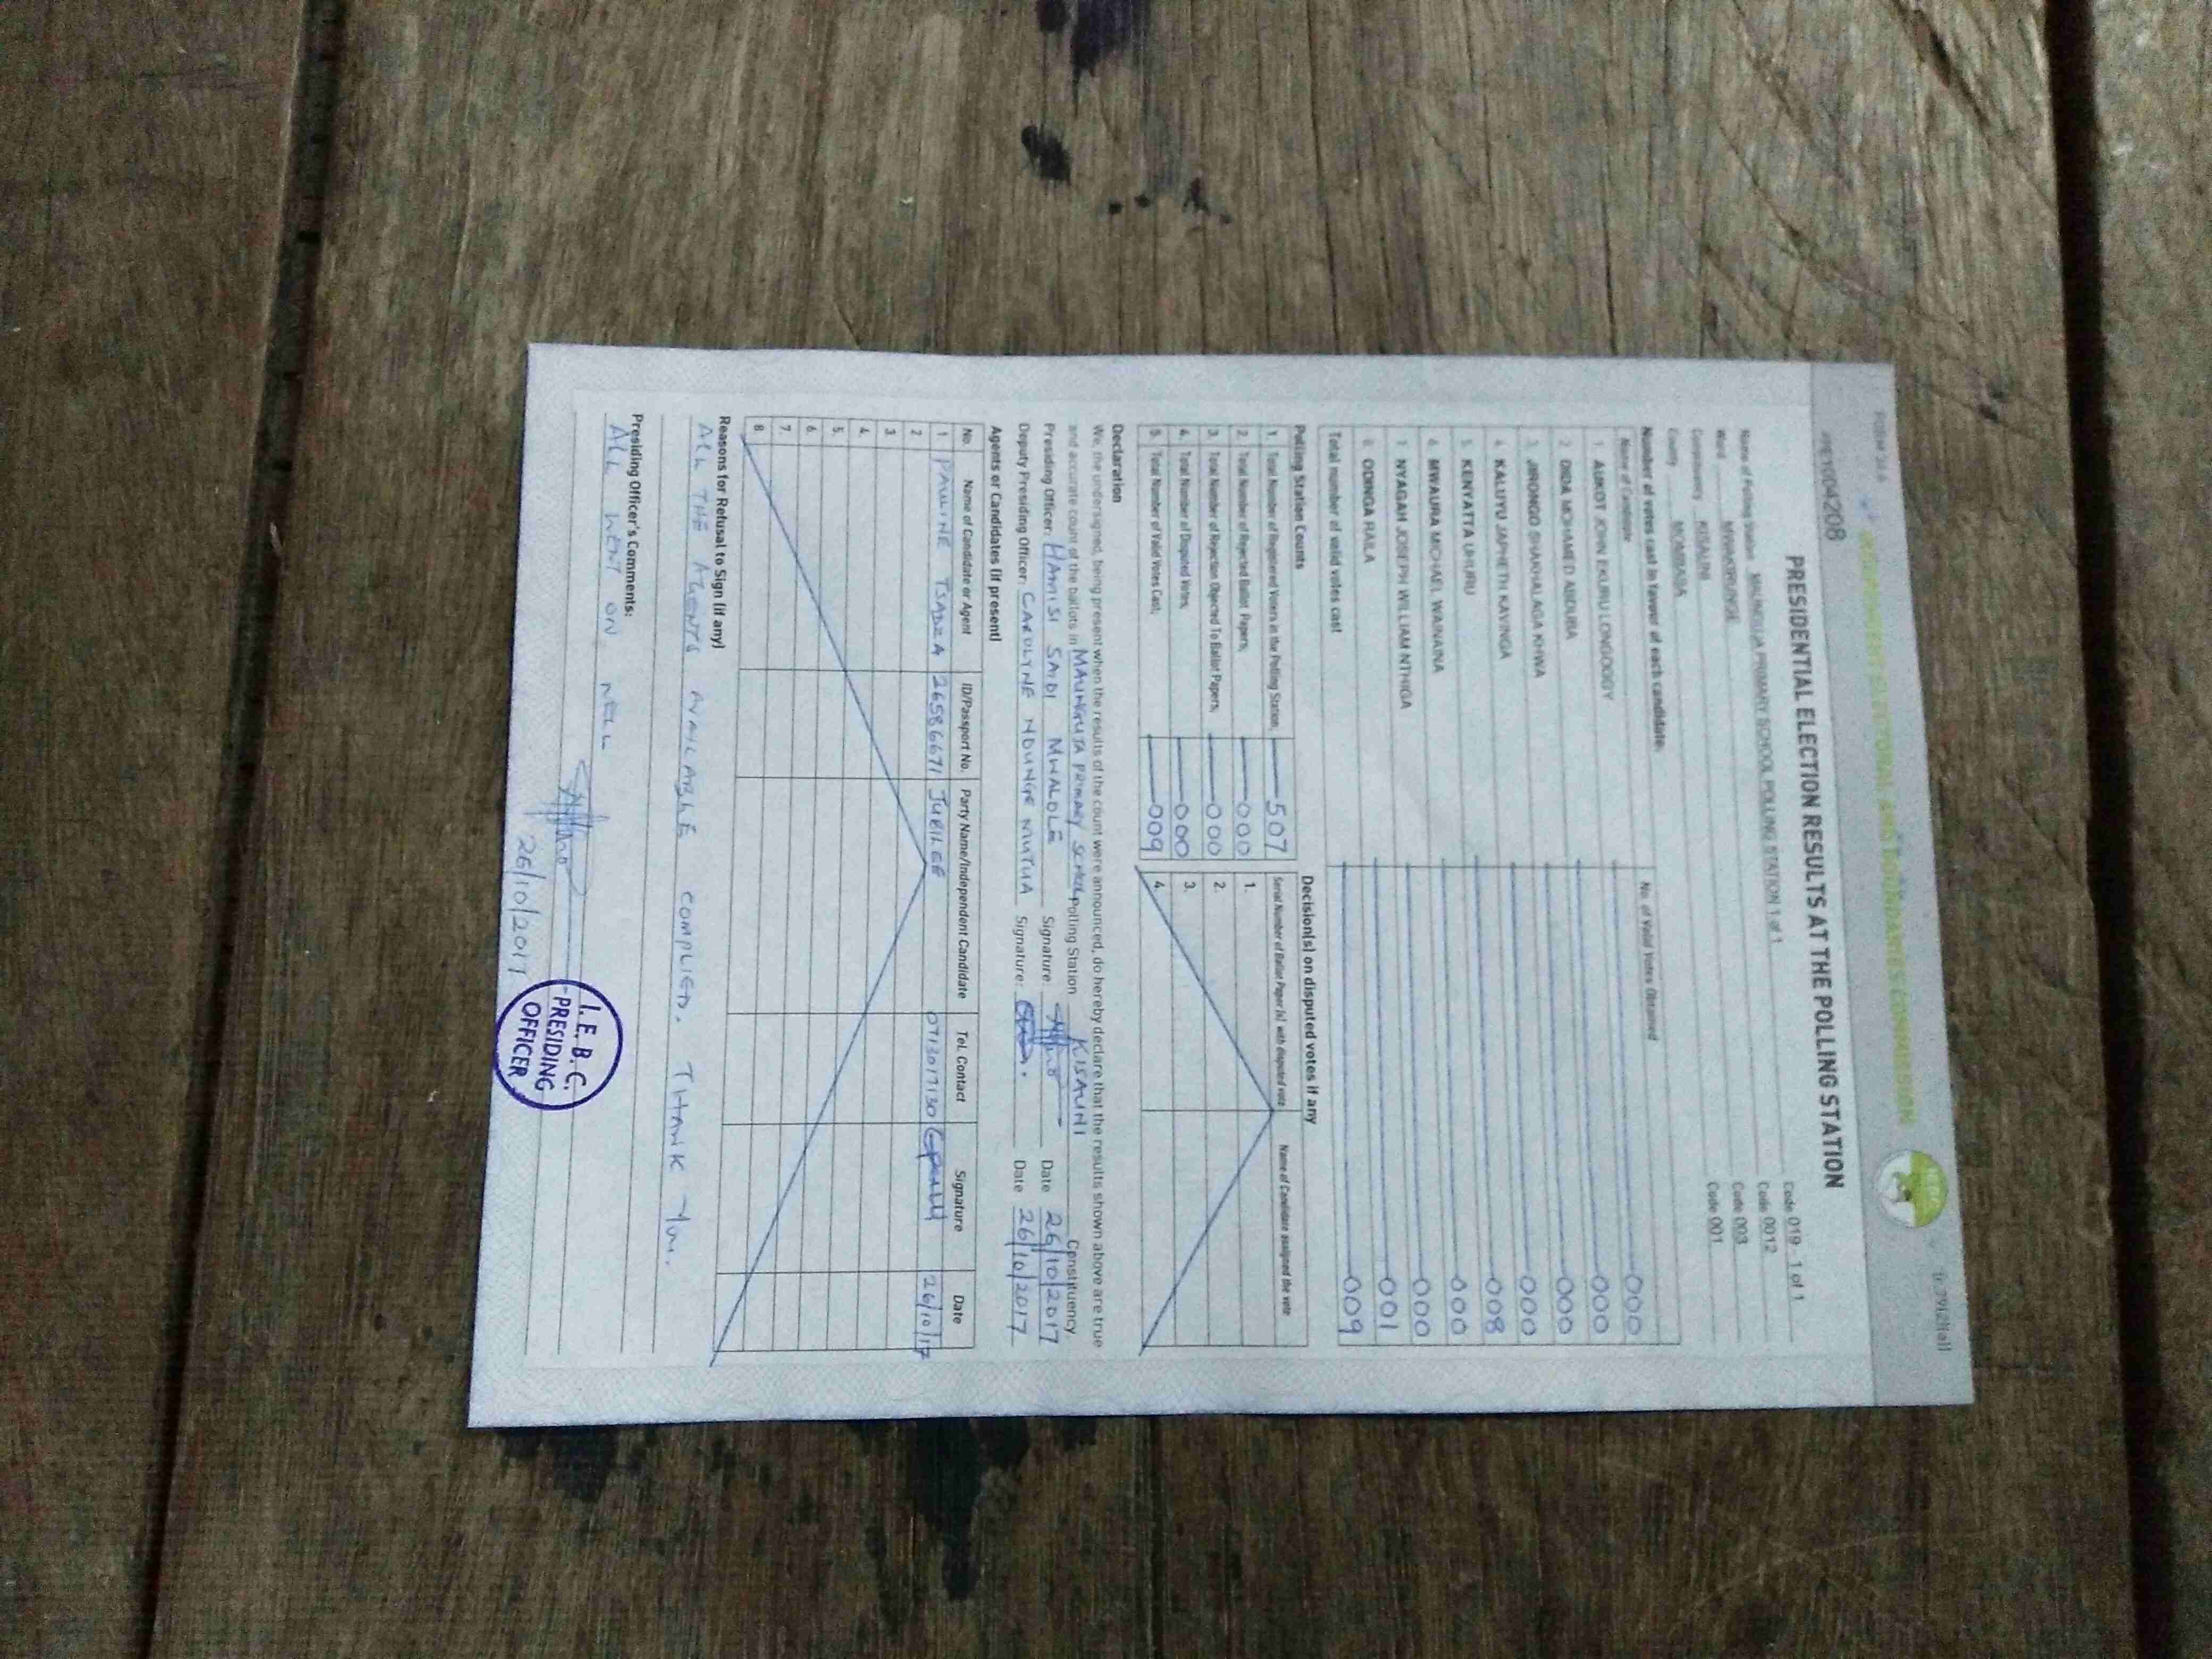 FORM 34 A
INDEPENDENT ELECTORAL AND BOUNDARIES COMMISSION
PRESIDENTIAL ELECTION RESULTS AT THE POLLING STATION
Name of Polling Station MAUNGUJA PRIMARY SCHOOL POLLING STATION 1 of 1 Code 019 1 of 1
Ward MWAKIRUNGE Code 0012
Constituency KISAUNI Code 003
County MOMBASA Code 001
Number of votes cast in favor of each candidate:
Name of Candidate No. of Valid Votes Obtained
1. AUKOT JOHN EKURU LONGOGGY 000
2. DIDA MOHAMED ABDUBA 000
3. JIRONGO SHAKHALAGA KHWA 000
4. KALUYU JAPHETH KAVINGA 000
5. KENYATTA UHURU 008
6. MWAURA MICHAEL WAINAINA 000
7. NYAGAH JOSEPH WILLIAM NTHIGA 000
8. ODINGA RAILA 001
Total number of valid votes cast 009
Polling Station Counts
1. Total Number of Registered Voters in the Polling Station, 507
2. Total Number of Rejected Ballot Papers, 000
3. Total Number of Rejection Objected To Ballot Papers, 000
4. Total Number of Disputed Votes, 000
5. Total Number of Valid Votes Cast, 009
Decision(s) on disputed votes if any
Serial Number of Ballot Paper (s) with disputed vote Name of Candidate assigned the vote
1.
2.
3.
4.
Declaration
We, the undersigned, being present when the results of the count were announced, do hereby declare that the results shown above are true
and accurate count of the ballots in MAUNGUJA PRIMARY SCHOOL Polling Station KISAUNI Constituency
Presiding Officer: HAMISI SAIDI MWALOLE Signature: Date 26/10/2017
Deputy Presiding Officer: CAROLYNE NDUNGE MUTUA Signature: Date 26/10/2017
Agents or Candidates (if present)
No. Name of Candidate or Agent ID/Passport No. Party Name/Independent Candidate Tel. Contact Signature Date
1 PAULINE TSADZA 26586671 JUBILEE 0713017130 26/10/17
2
3
4.
5.
6.
7.
8
Reasons for Refusal to Sign (if any)
ALL THE AGENTS AVAILABLE COMPLIED. THANK You.
Presiding Officer's Comments:
ALL WENT ON WELL
26/10/2017
I. E. B. C.
PRESIDING
OFFICER